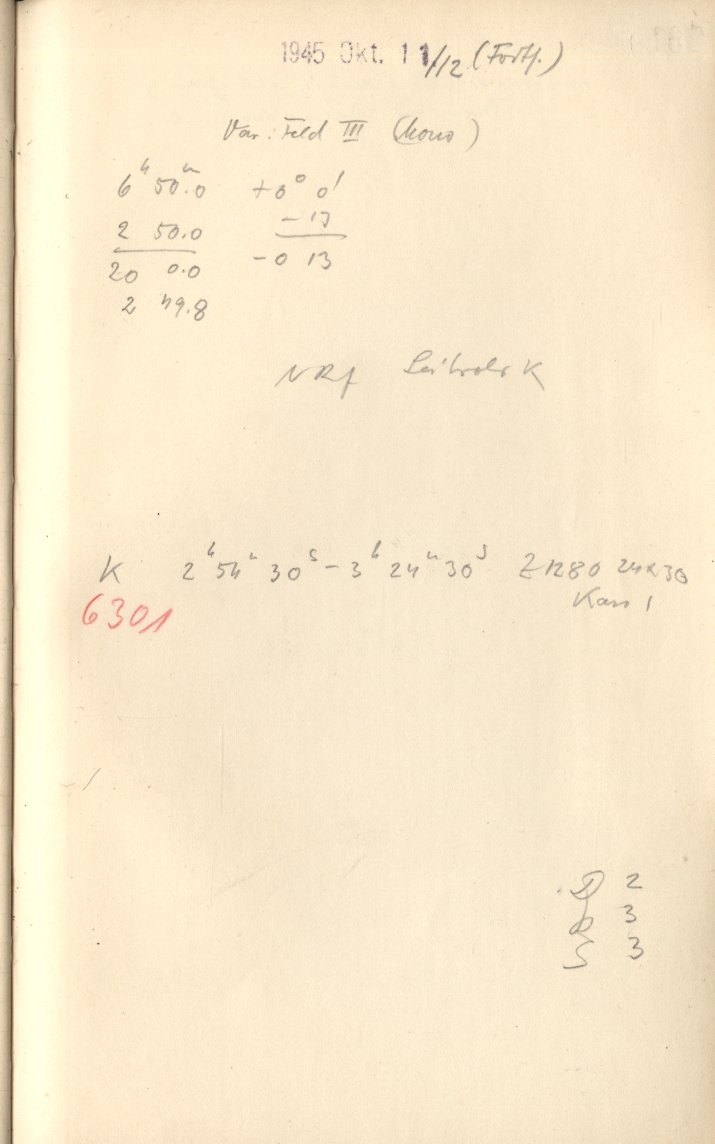 1945 Okt. 11/12 (Forts.)
Var. Feld III (Mono)
6ʰ 50ᵐ.0 +0° 0'
2 50.0 - 13
20 0.0 - 0 13
2 49.8
K
K 2ʰ 54ᵐ 30ˢ - 3ʰ 24ᵐ 30ˢ Z 1280 24x30
6301 Kass 1
D 2
R 3
S 3